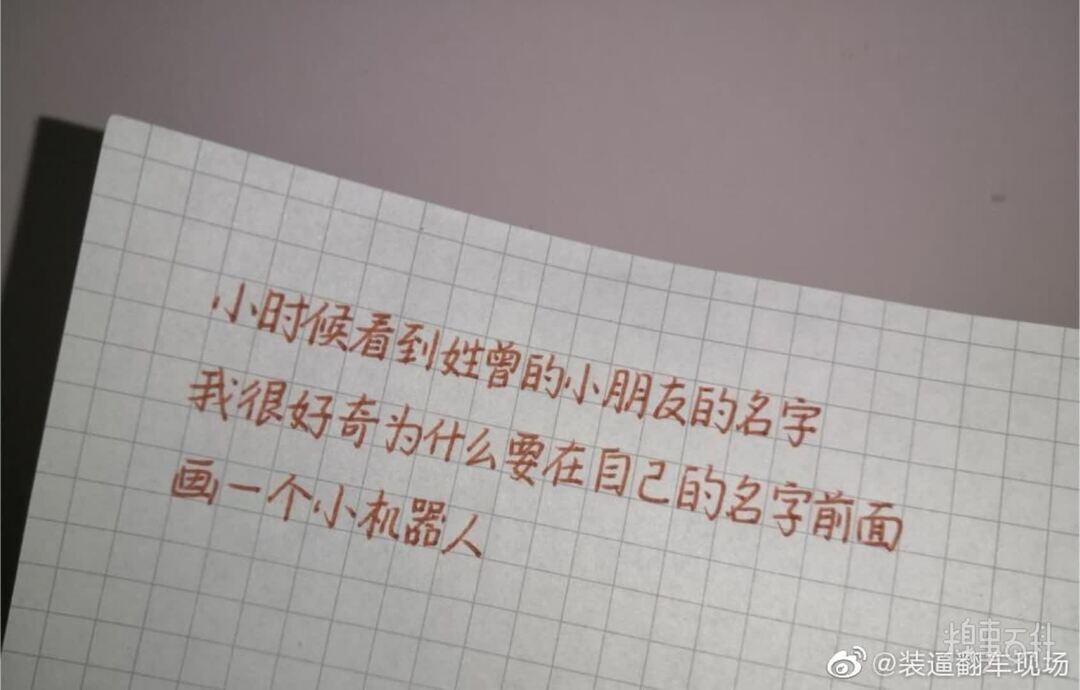 小时候看到姓曾的小朋友的名字
我很好奇为什么要在自己的名字前面
画一个小机器人
糗事百科
@装逼翻车现场